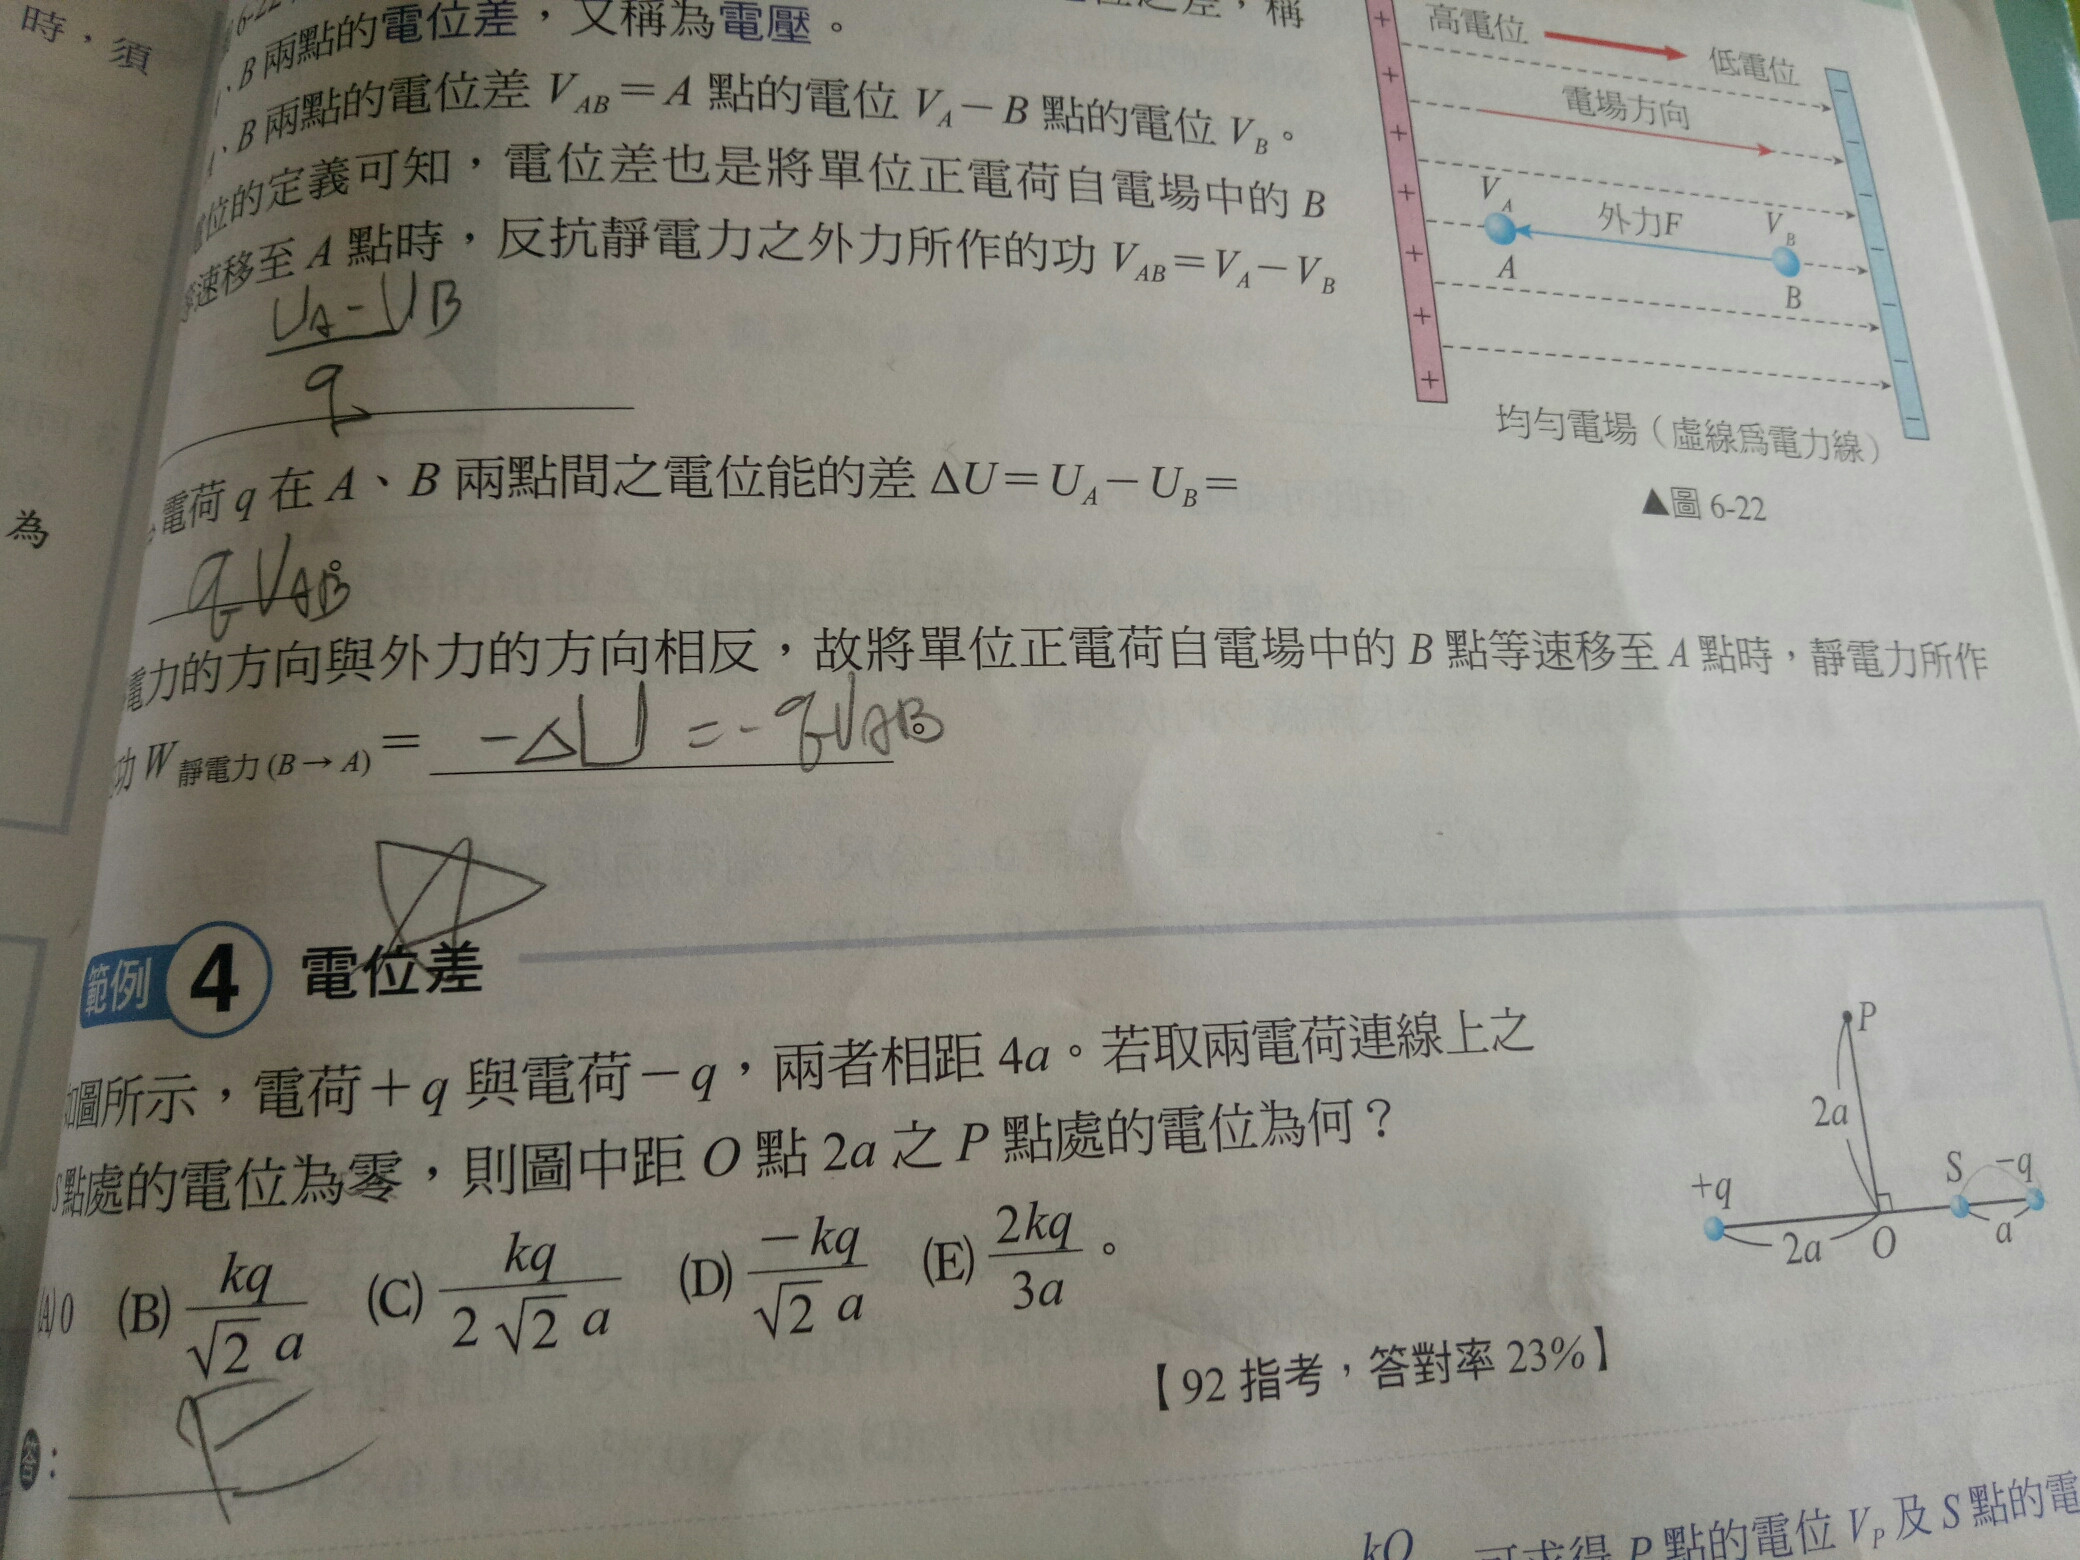 時，須
為
B 兩點的電位差，又稱為電壓。
B 兩點的電位差 V_AB＝A 點的電位 V_A－B 點的電位 V_B。
位的定義可知，電位差也是將單位正電荷自電場中的 B
速移至 A 點時，反抗靜電力之外力所作的功 V_AB＝V_A－V_B
U_A－U_B
q
電荷 q 在 A、B 兩點間之電位能的差 ΔU＝U_A－U_B＝
qV_AB。
電力的方向與外力的方向相反，故將單位正電荷自電場中的 B 點等速移至 A 點時，靜電力所作
功 W 靜電力 (B→A)＝ －ΔU＝－qV_AB。
高電位
低電位
電場方向
V_A
外力F
V_B
A
B
均勻電場（虛線為電力線）
▲圖 6-22
範例 4 電位差
如圖所示，電荷＋q 與電荷－q，兩者相距 4a。若取兩電荷連線上之
S 點處的電位為零，則圖中距 O 點 2a 之 P 點處的電位為何？
(A) 0 (B) kq/√2 a (C) kq/2√2 a (D) －kq/√2 a (E) 2kq/3a。
【92 指考，答對率 23%】
P
2a
+q
S
−q
2a
O
a
答：E
kQ
可求得 P 點的電位 V_P 及 S 點的電